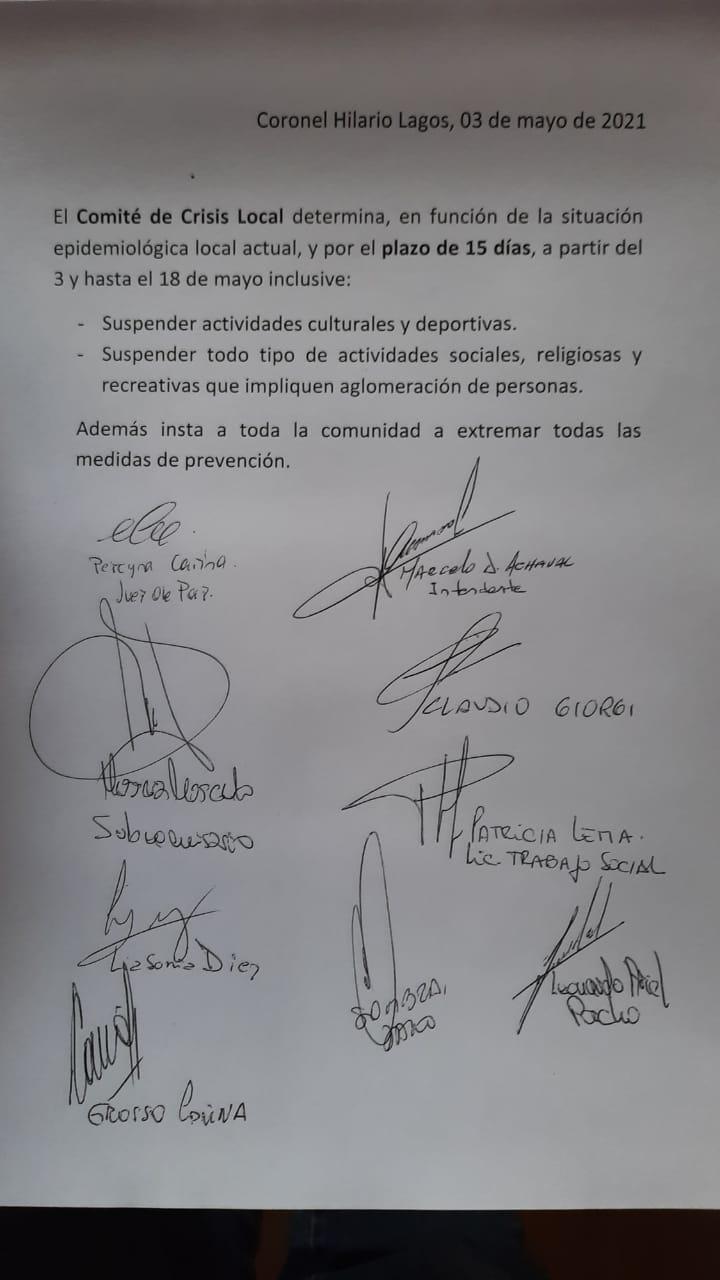 Coronel Hilario Lagos, 03 de mayo de 2021
El Comité de Crisis Local determina, en función de la situación
epidemiológica local actual, y por el plazo de 15 días, a partir del
3 y hasta el 18 de mayo inclusive:
- Suspender actividades culturales y deportivas.
- Suspender todo tipo de actividades sociales, religiosas y
recreativas que impliquen aglomeración de personas.
Además insta a toda la comunidad a extremar todas las
medidas de prevención.
Pereyra Carina.
Juez de Paz.
MARCELO D. ACHAVAL
Intendente
CLAUDIO GIORGI
Subcomisario
PATRICIA LEMA.
Lic. TRABAJO SOCIAL
Lia Sonia Diez
Leonardo Ariel
Pacho
GROSSO